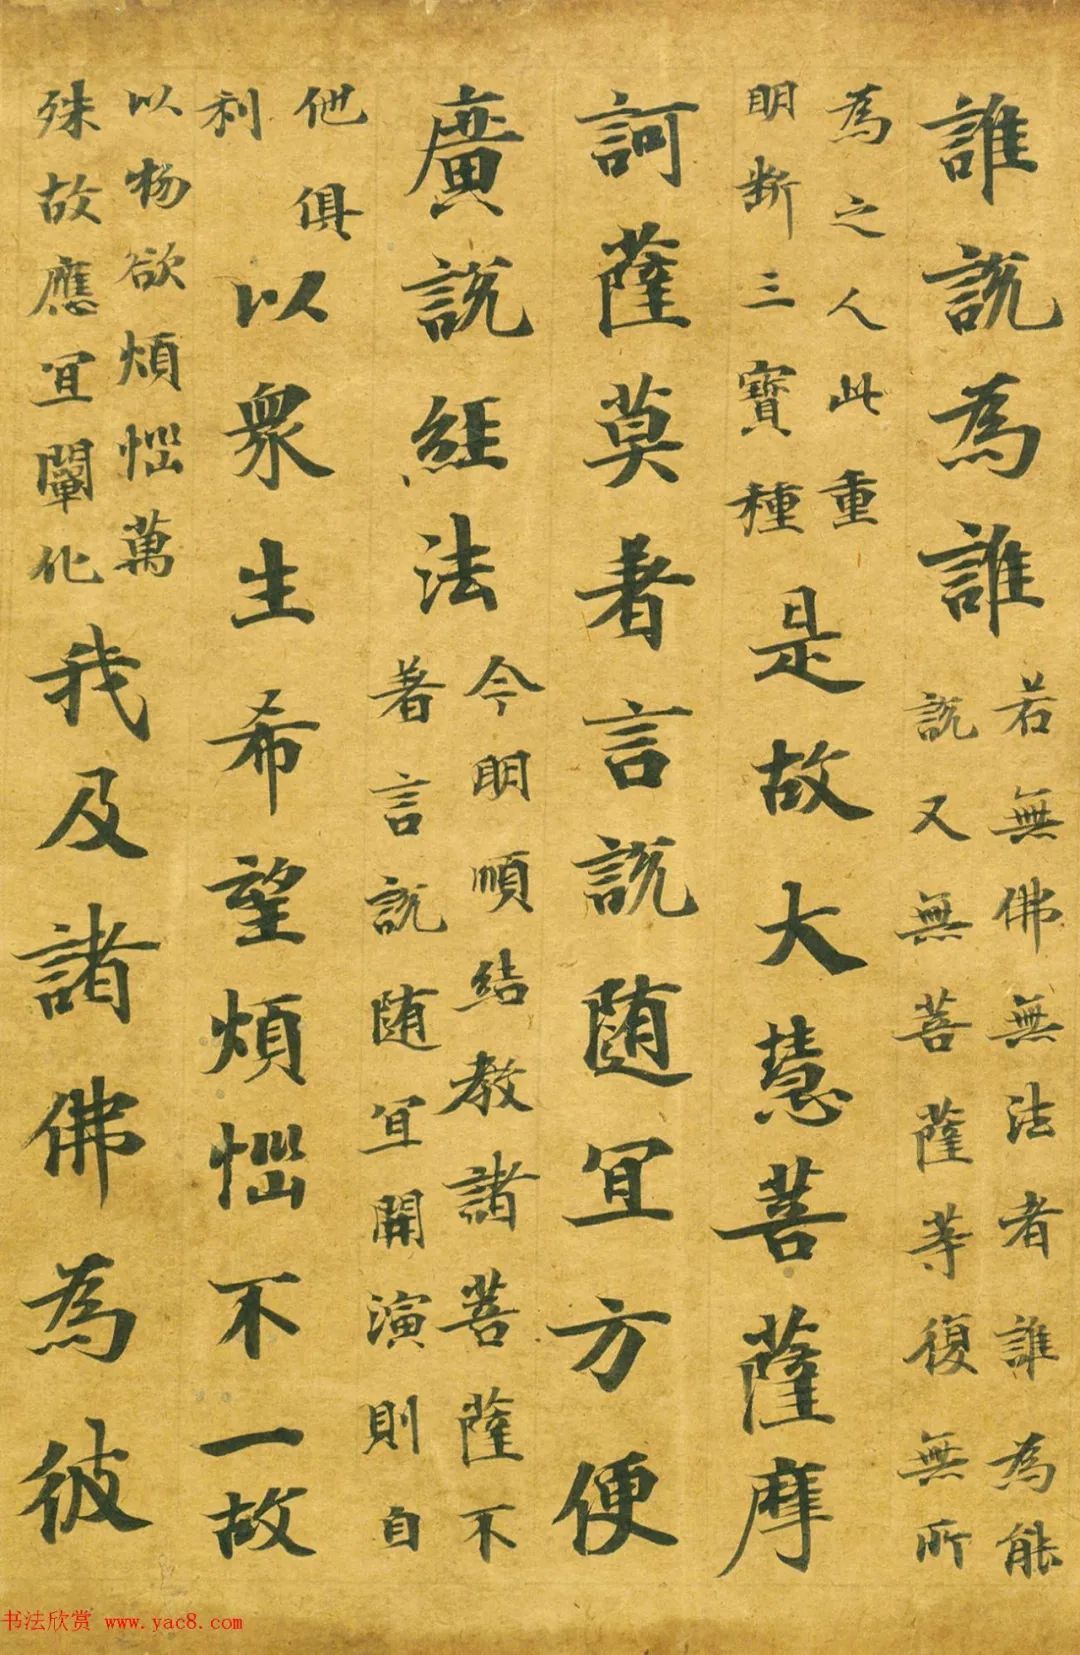 誰說為誰若無佛無法者誰為能說又無菩薩等復無所
為之人此重明斷三寶種是故大慧菩薩摩
訶薩莫著言說随宜方便
廣說經法今明順結教諸菩薩不著言說随宜開演則自
他俱利以眾生希望煩惱不一故
以物欲煩惱萬殊故應宜闡化我及諸佛為彼
书法欣赏 www.yac8.com